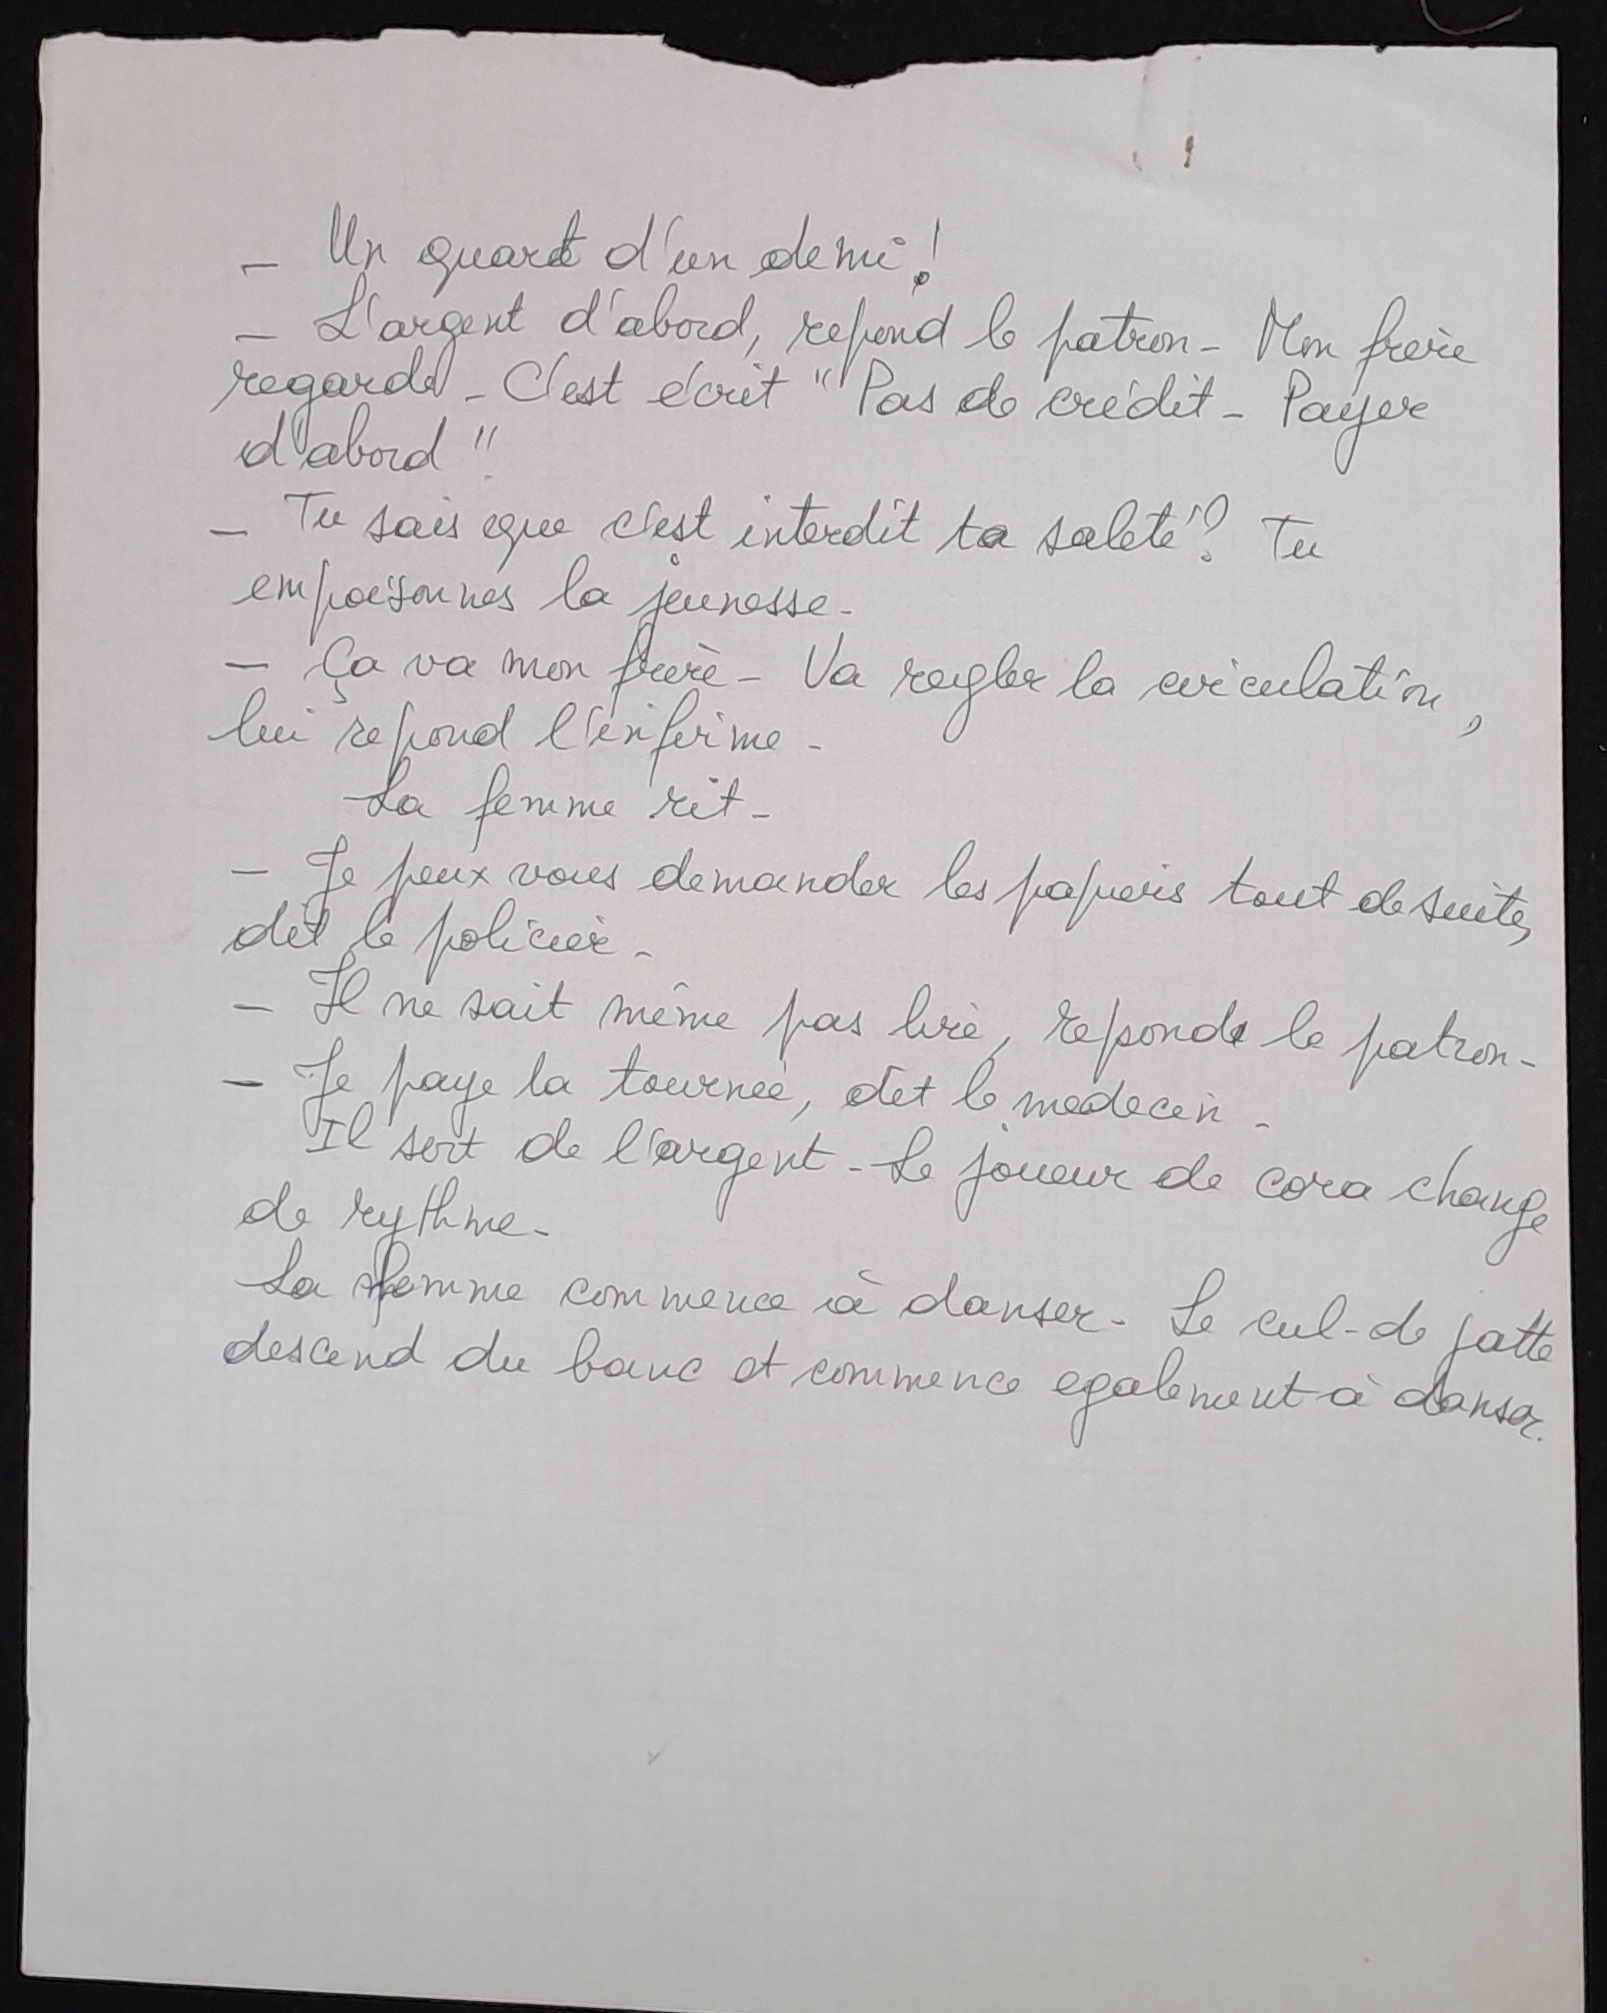 - Un quart d'un demi!
- L'argent d'abord, repond le patron - Mon frère
regarde - C'est écrit "Pas de crédit - Payer
d'abord"
- Tu sais que c'est interdit ta saleté? Tu
empoisonnes la jeunesse -
- Ça va mon frère - Va regler la circulation,
lui repond l'infirme -
La femme rit -
- Je peux vous demander les papiers tout de suite,
dit le policier -
- Il ne sait même pas lire, repond le patron -
- Je paye la tournée, dit le medecin -
Il sort de l'argent - Le joueur de cora change
de rythme -
La femme commence à danser - Le cul-de jatte
descend du banc et commence egalement à danser.